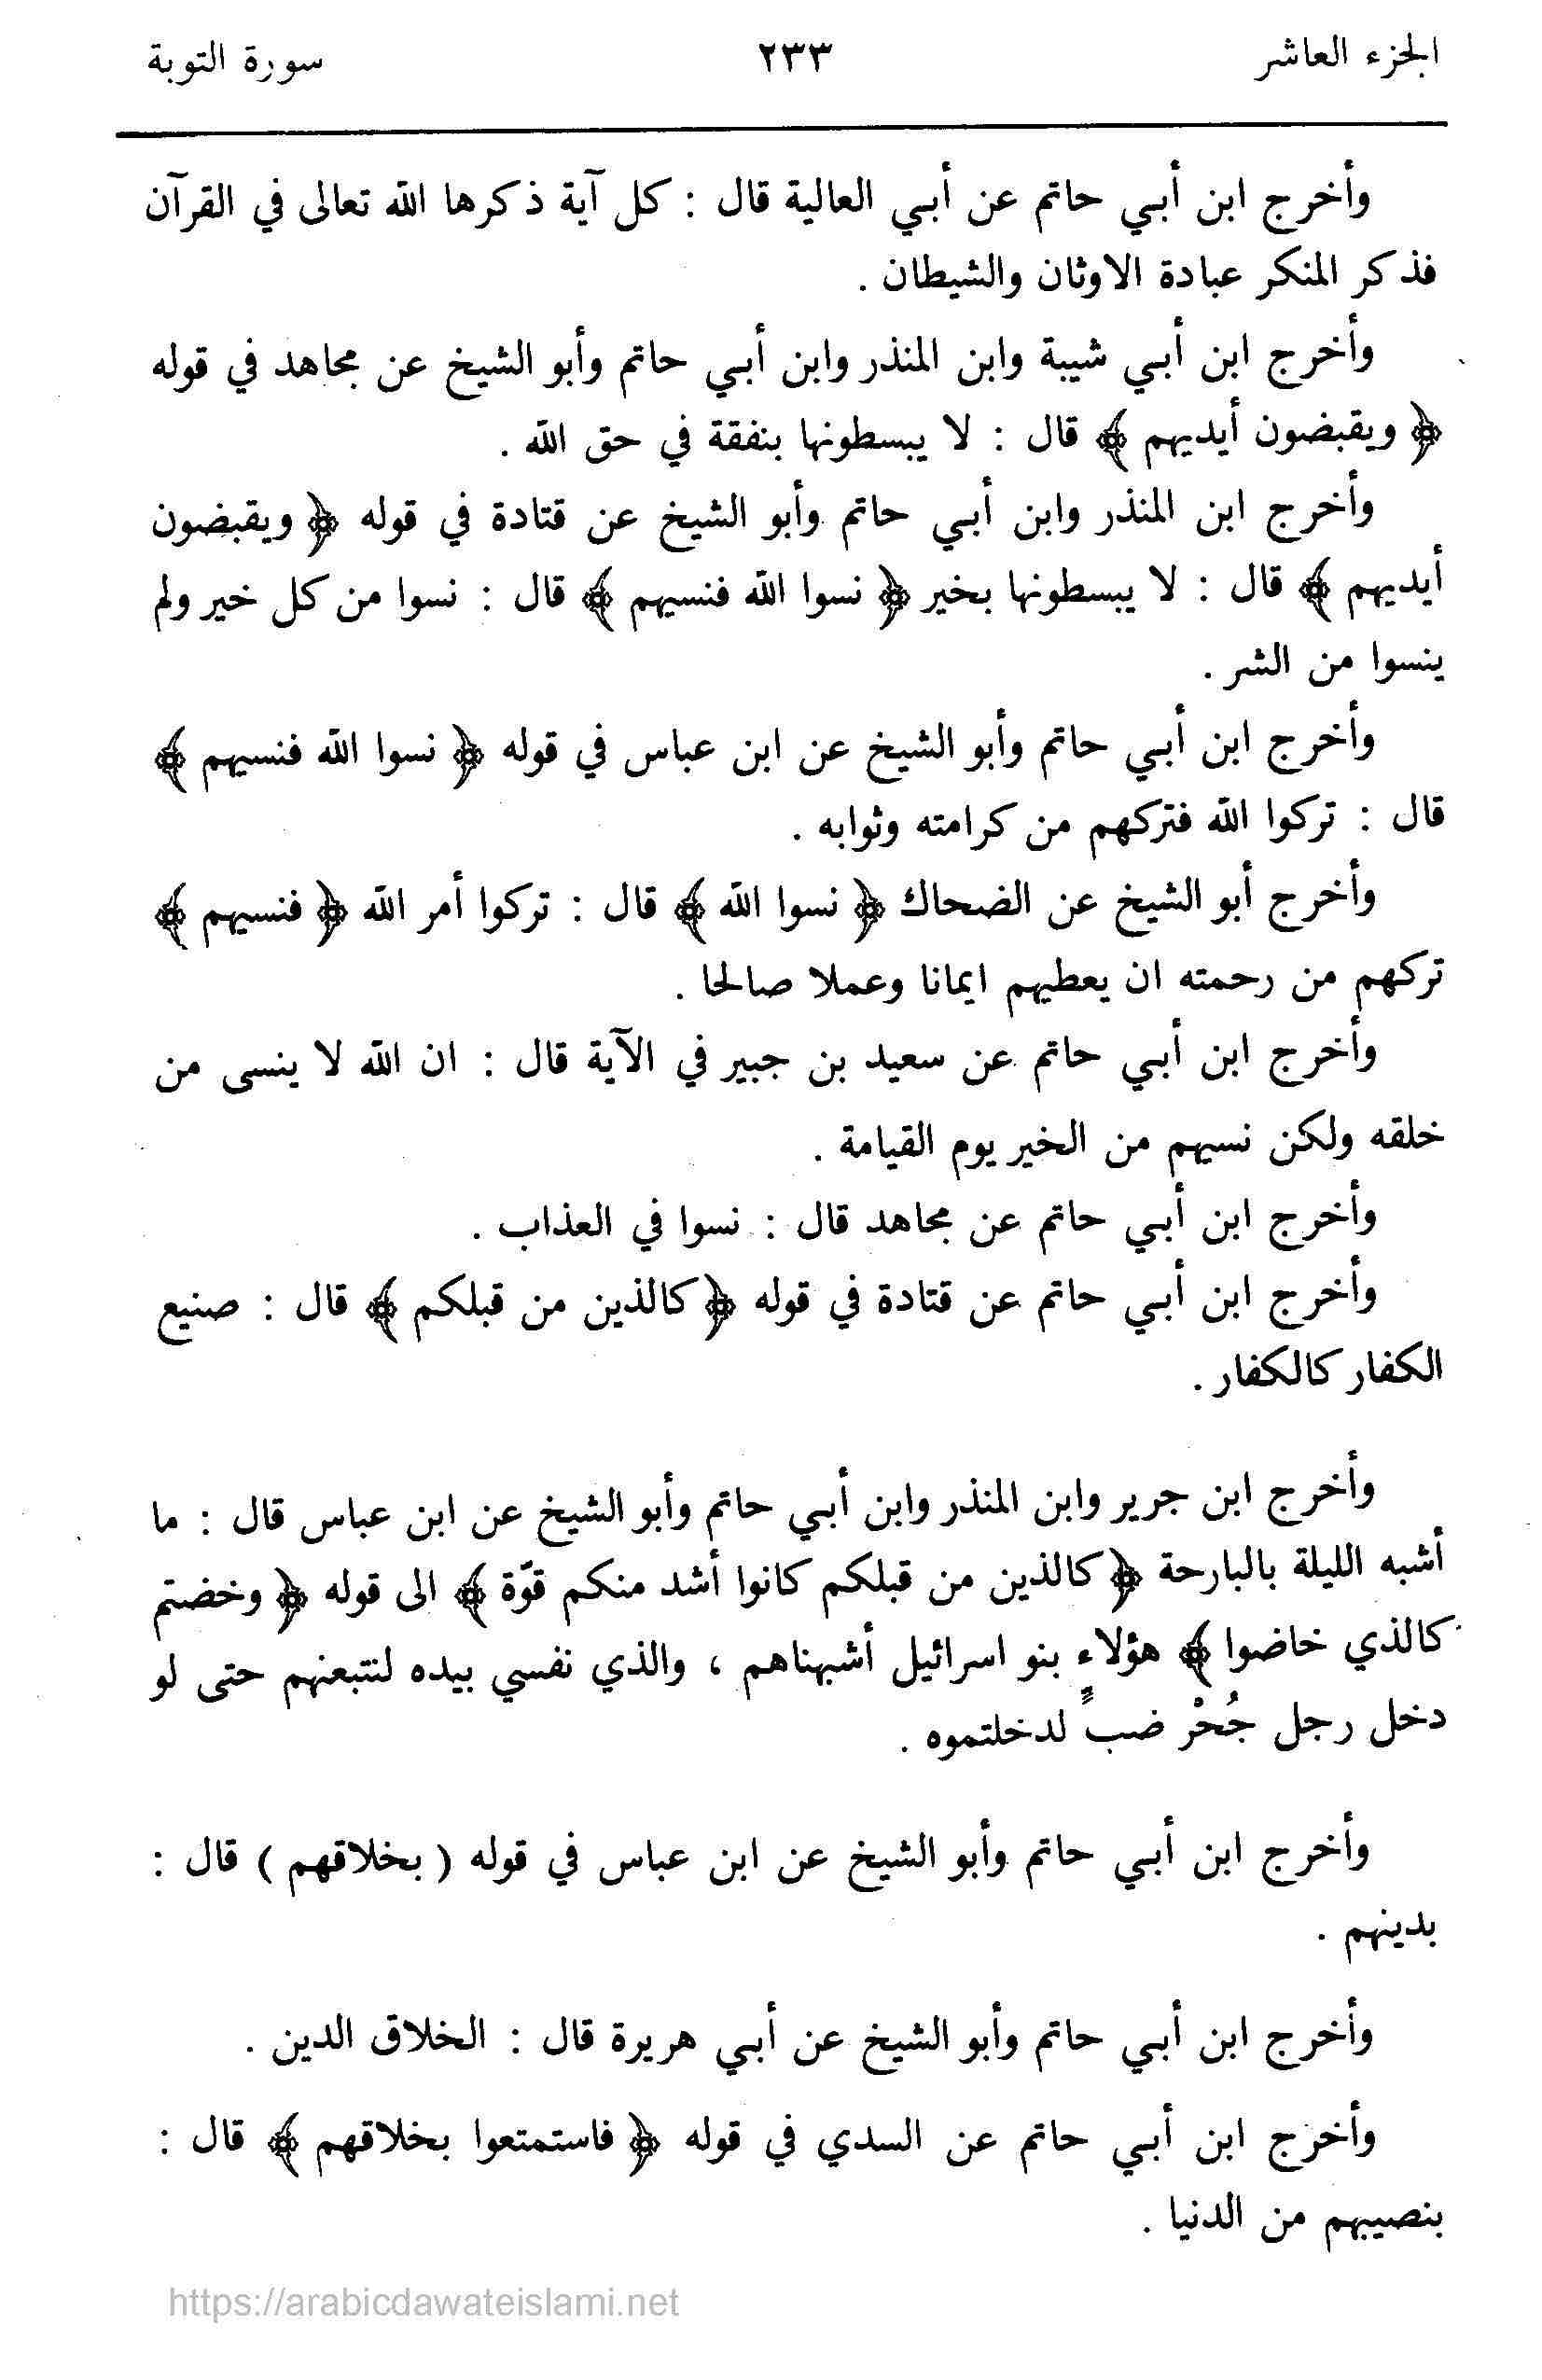 الجزء العاشر ٢٣٣ سورة التوبة
وأخرج ابن أبي حاتم عن أبي العالية قال : كل آية ذكرها الله تعالى في القرآن
فذكر المنكر عبادة الاوثان والشيطان .
وأخرج ابن أبي شيبة وابن المنذر وابن أبي حاتم وأبو الشيخ عن مجاهد في قوله
﴿ ويقبضون أيديهم ﴾ قال : لا يبسطونها بنفقة في حق الله .
وأخرج ابن المنذر وابن أبي حاتم وأبو الشيخ عن قتادة في قوله ﴿ ويقبضون
أيديهم ﴾ قال : لا يبسطونها بخير ﴿ نسوا الله فنسيهم ﴾ قال : نسوا من كل خير ولم
ينسوا من الشر .
وأخرج ابن أبي حاتم وأبو الشيخ عن ابن عباس في قوله ﴿ نسوا الله فنسيهم ﴾
قال : تركوا الله فتركهم من كرامته وثوابه .
وأخرج أبو الشيخ عن الضحاك ﴿ نسوا الله ﴾ قال : تركوا أمر الله ﴿ فنسيهم ﴾
تركهم من رحمته ان يعطيهم ايمانا وعملا صالحا .
وأخرج ابن أبي حاتم عن سعيد بن جبير في الآية قال : ان الله لا ينسى من
خلقه ولكن نسيهم من الخير يوم القيامة .
وأخرج ابن أبي حاتم عن مجاهد قال : نسوا في العذاب .
وأخرج ابن أبي حاتم عن قتادة في قوله ﴿ كالذين من قبلكم ﴾ قال : صنيع
الكفار كالكفار .
وأخرج ابن جرير وابن المنذر وابن أبي حاتم وأبو الشيخ عن ابن عباس قال : ما
أشبه الليلة بالبارحة ﴿ كالذين من قبلكم كانوا أشد منكم قوّة ﴾ الى قوله ﴿ وخضتم
كالذي خاضوا ﴾ هؤلاءٍ بنو اسرائيل أشبهناهم ، والذي نفسي بيده لنتبعنهم حتى لو
دخل رجل جُحْر ضبٍّ لدخلتموه .
وأخرج ابن أبي حاتم وأبو الشيخ عن ابن عباس في قوله ( بخلاقهم ) قال :
بدينهم .
وأخرج ابن أبي حاتم وأبو الشيخ عن أبي هريرة قال : الخلاق الدين .
وأخرج ابن أبي حاتم عن السدي في قوله ﴿ فاستمتعوا بخلاقهم ﴾ قال :
بنصيبهم من الدنيا .
https://arabicdawateislami.net